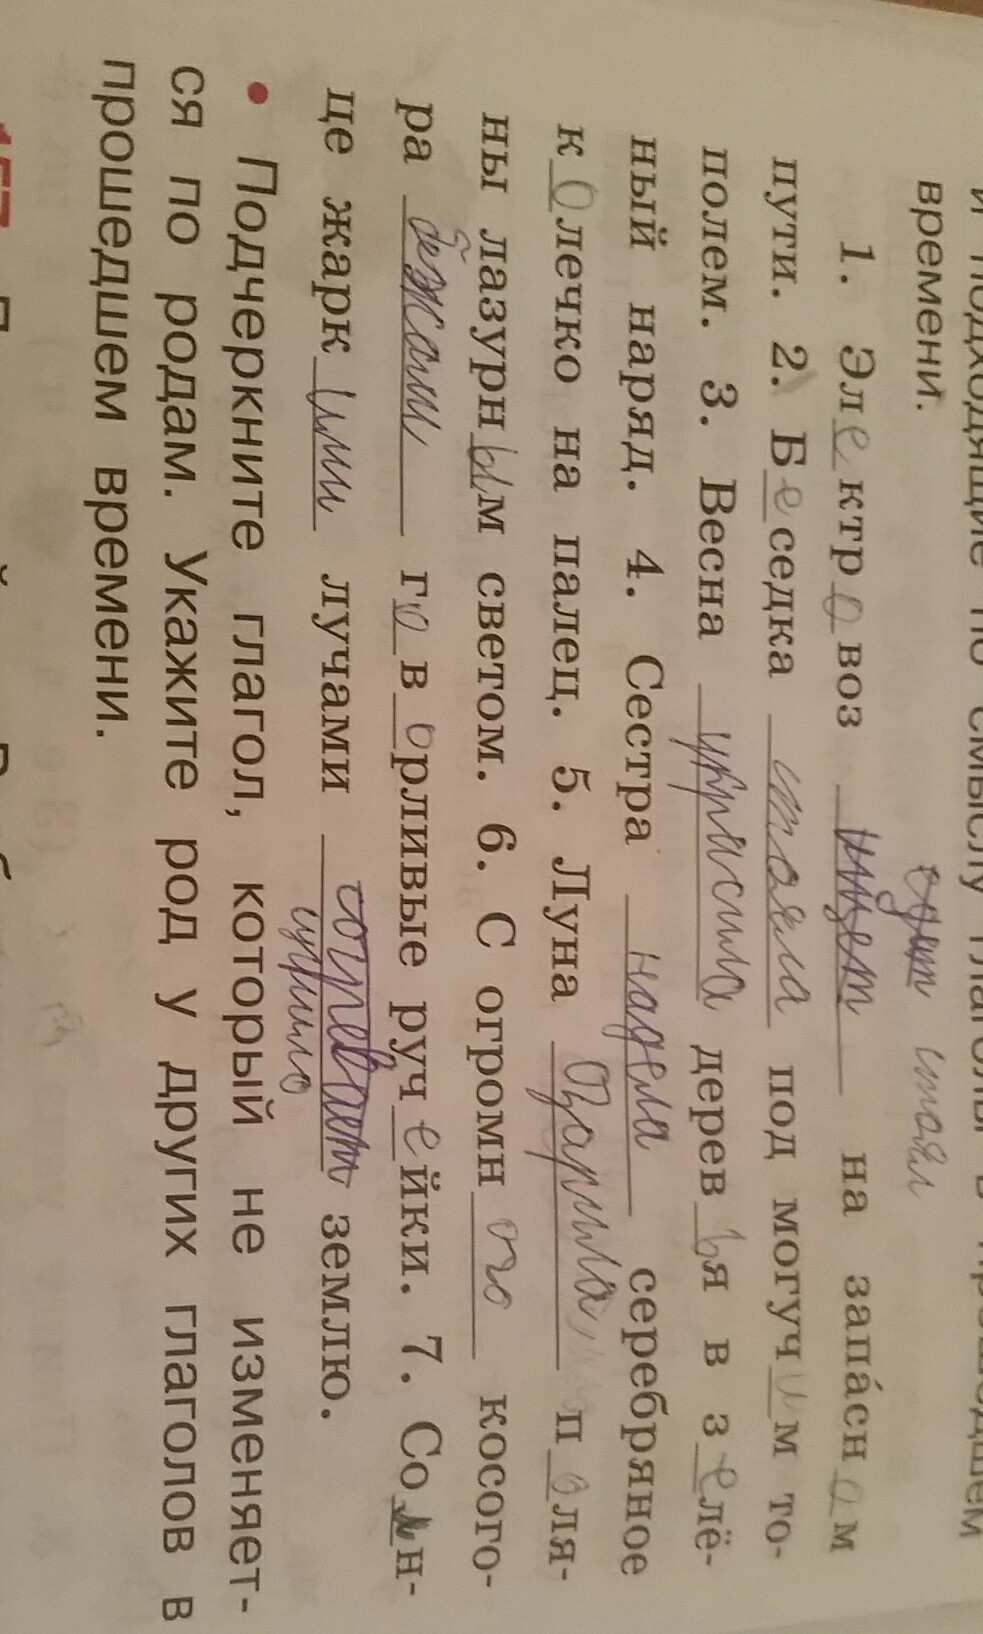 и подходящие по смыслу глаголы в прошедшем
времени.
едет стоял
1. Электровоз идет на запа́сном
пути. 2. Беседка стояла под могучим то-
полем. 3. Весна украсила деревья в зелё-
ный наряд. 4. Сестра надела серебряное
колечко на палец. 5. Луна Озарила поля-
ны лазурным светом. 6. С огромного косого-
ра бежали говорливые ручейки. 7. Солн-
це жаркими лучами согревает землю.
• Подчеркните глагол, который не изменяет-
ся по родам. Укажите род у других глаголов в
прошедшем времени.